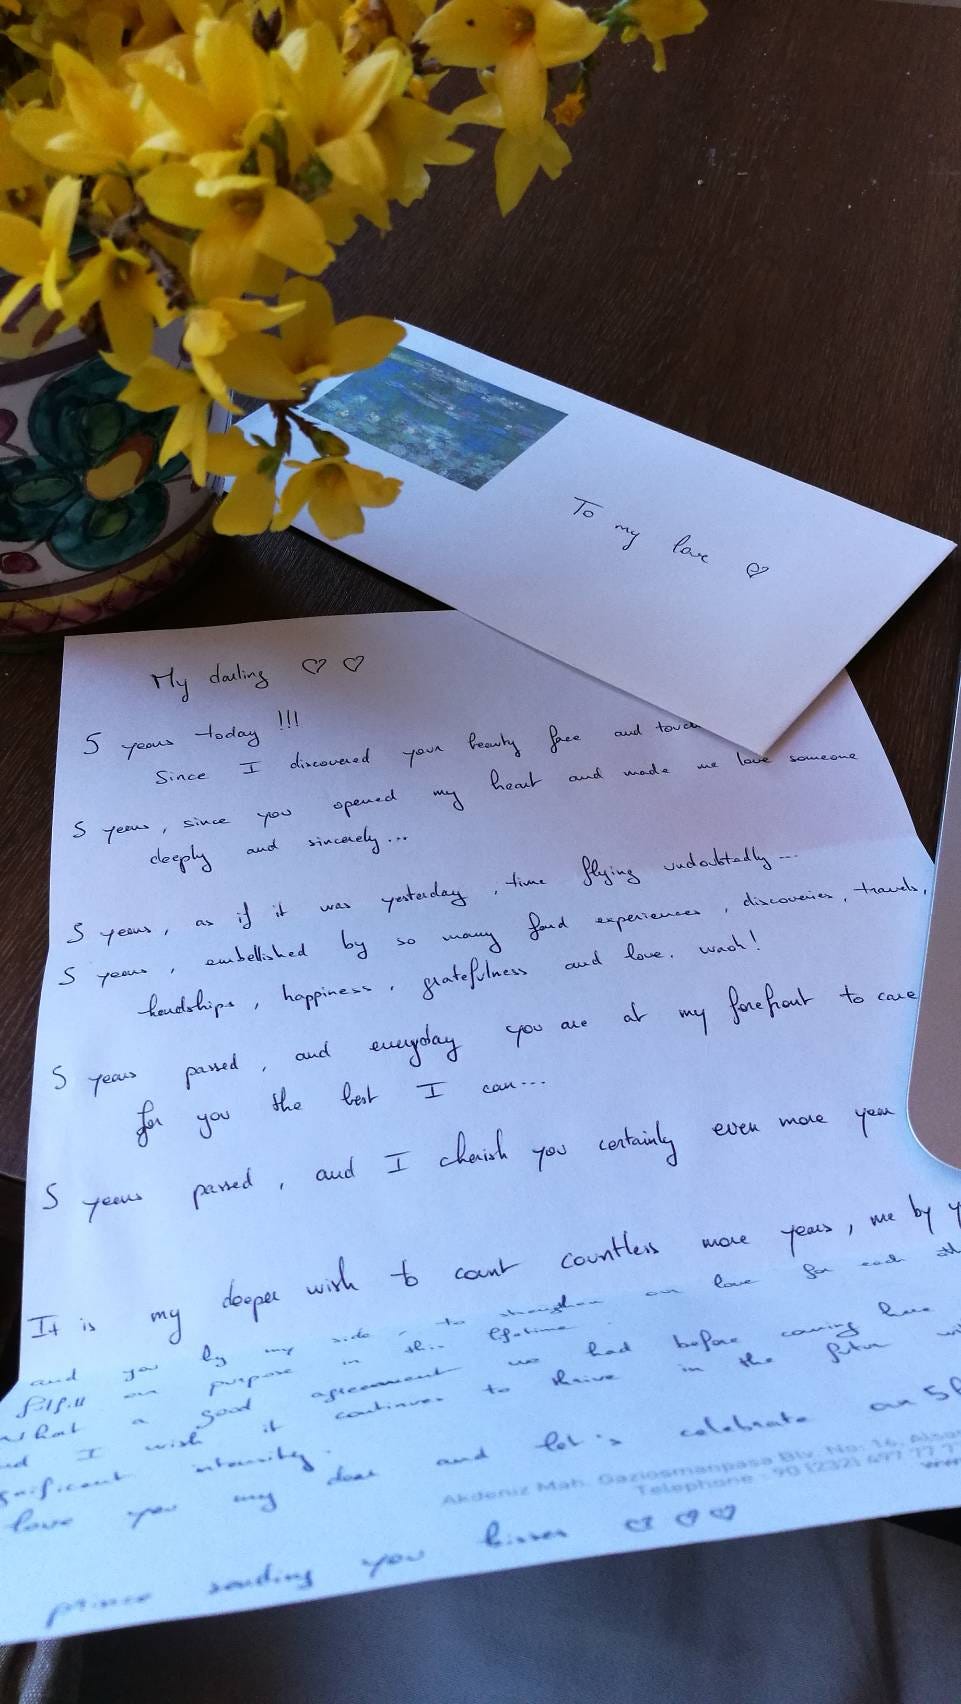 To my love
My darling
5 years today !!!
Since I discovered your beauty face and
5 years, since you opened my heart and made me love someone
deeply and sincerely...
5 years, as if it was yesterday, time flying undoubtedly...
5 years, embellished by so many fond experiences, discoveries, travels,
hardships, happiness, gratefulness and love.
5 years passed, and everyday you are at my forefront to care
for you the best I can...
5 years passed, and I cherish you certainly even more year
It is my deeper wish to count countless more years, me by
and you by my side, to strengthen our love for each
fulfill our purpose in this lifetime.
What a good agreement we had before coming here
I wish it continues to thrive in the futur
intensity.
love you my dear and let's celebrate our 5
Akdeniz Mah. Gaziosmanpaşa Blv. No: 16,
Telephone : 90 (232) 497 77 7
www
prince sending you kisses